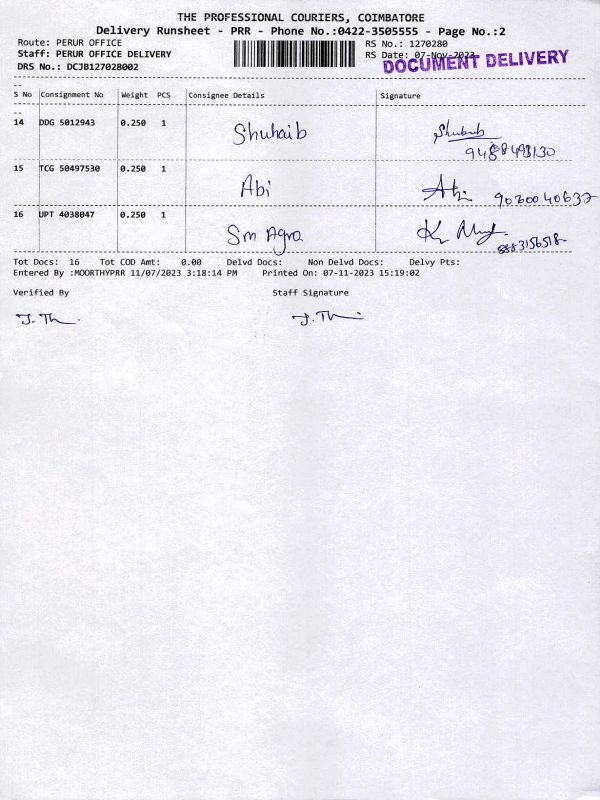 THE PROFESSIONAL COURIERS, COIMBATORE
Delivery Runsheet - PRR - Phone No.:0422-3505555 - Page No.:2
Route: PERUR OFFICE RS No.: 1270280
Staff: PERUR OFFICE DELIVERY RS Date: 07-Nov-2023
DOCUMENT DELIVERY
DRS No.: DCJB127028002
S No Consignment No Weight PCS Consignee Details Signature
14 DDG 5012943 0.250 1 Shuhaib
15 TCG 50497530 0.250 1 Abi 9020040632
16 UPT 4038047 0.250 1 Sm Agra 8883156518
Tot Docs: 16 Tot COD Amt: 0.00 Delvd Docs: Non Delvd Docs: Delvy Pts:
Entered By :MOORTHYPRR 11/07/2023 3:18:14 PM Printed On: 07-11-2023 15:19:02
Verified By Staff Signature